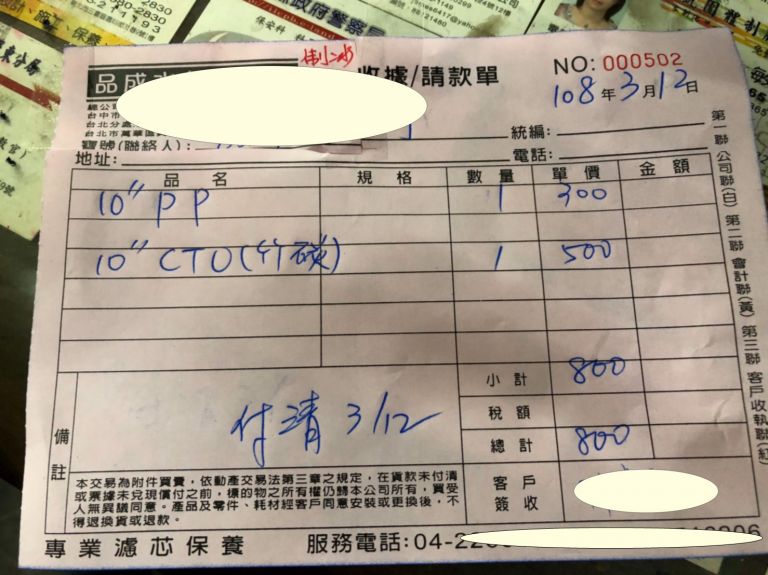 品成水
收據/請款單
NO: 000502
108年3月12日
總公
台中市
台北分處
台北市萬華區
寶號(聯絡人):
統編:
地址:
電話:
品名 規格 數量 單價 金額
10" PP 1 300
10" CTO(竹碳) 1 500
小計 800
稅額
總計 800
備註
付清 3/12
本交易為附件買賣，依動產交易法第三章之規定，在貨款未付清
或票據未兌現償付之前，標的物之所有權仍歸本公司所有，買受
人無異議同意。產品及零件、耗材經客戶同意安裝或更換後，不
得退換貨或退款。
客戶
簽收
專業濾芯保養
服務電話:04-22
第一聯公司聯(白) 第二聯會計聯(黃) 第三聯客戶收執聯(紅)